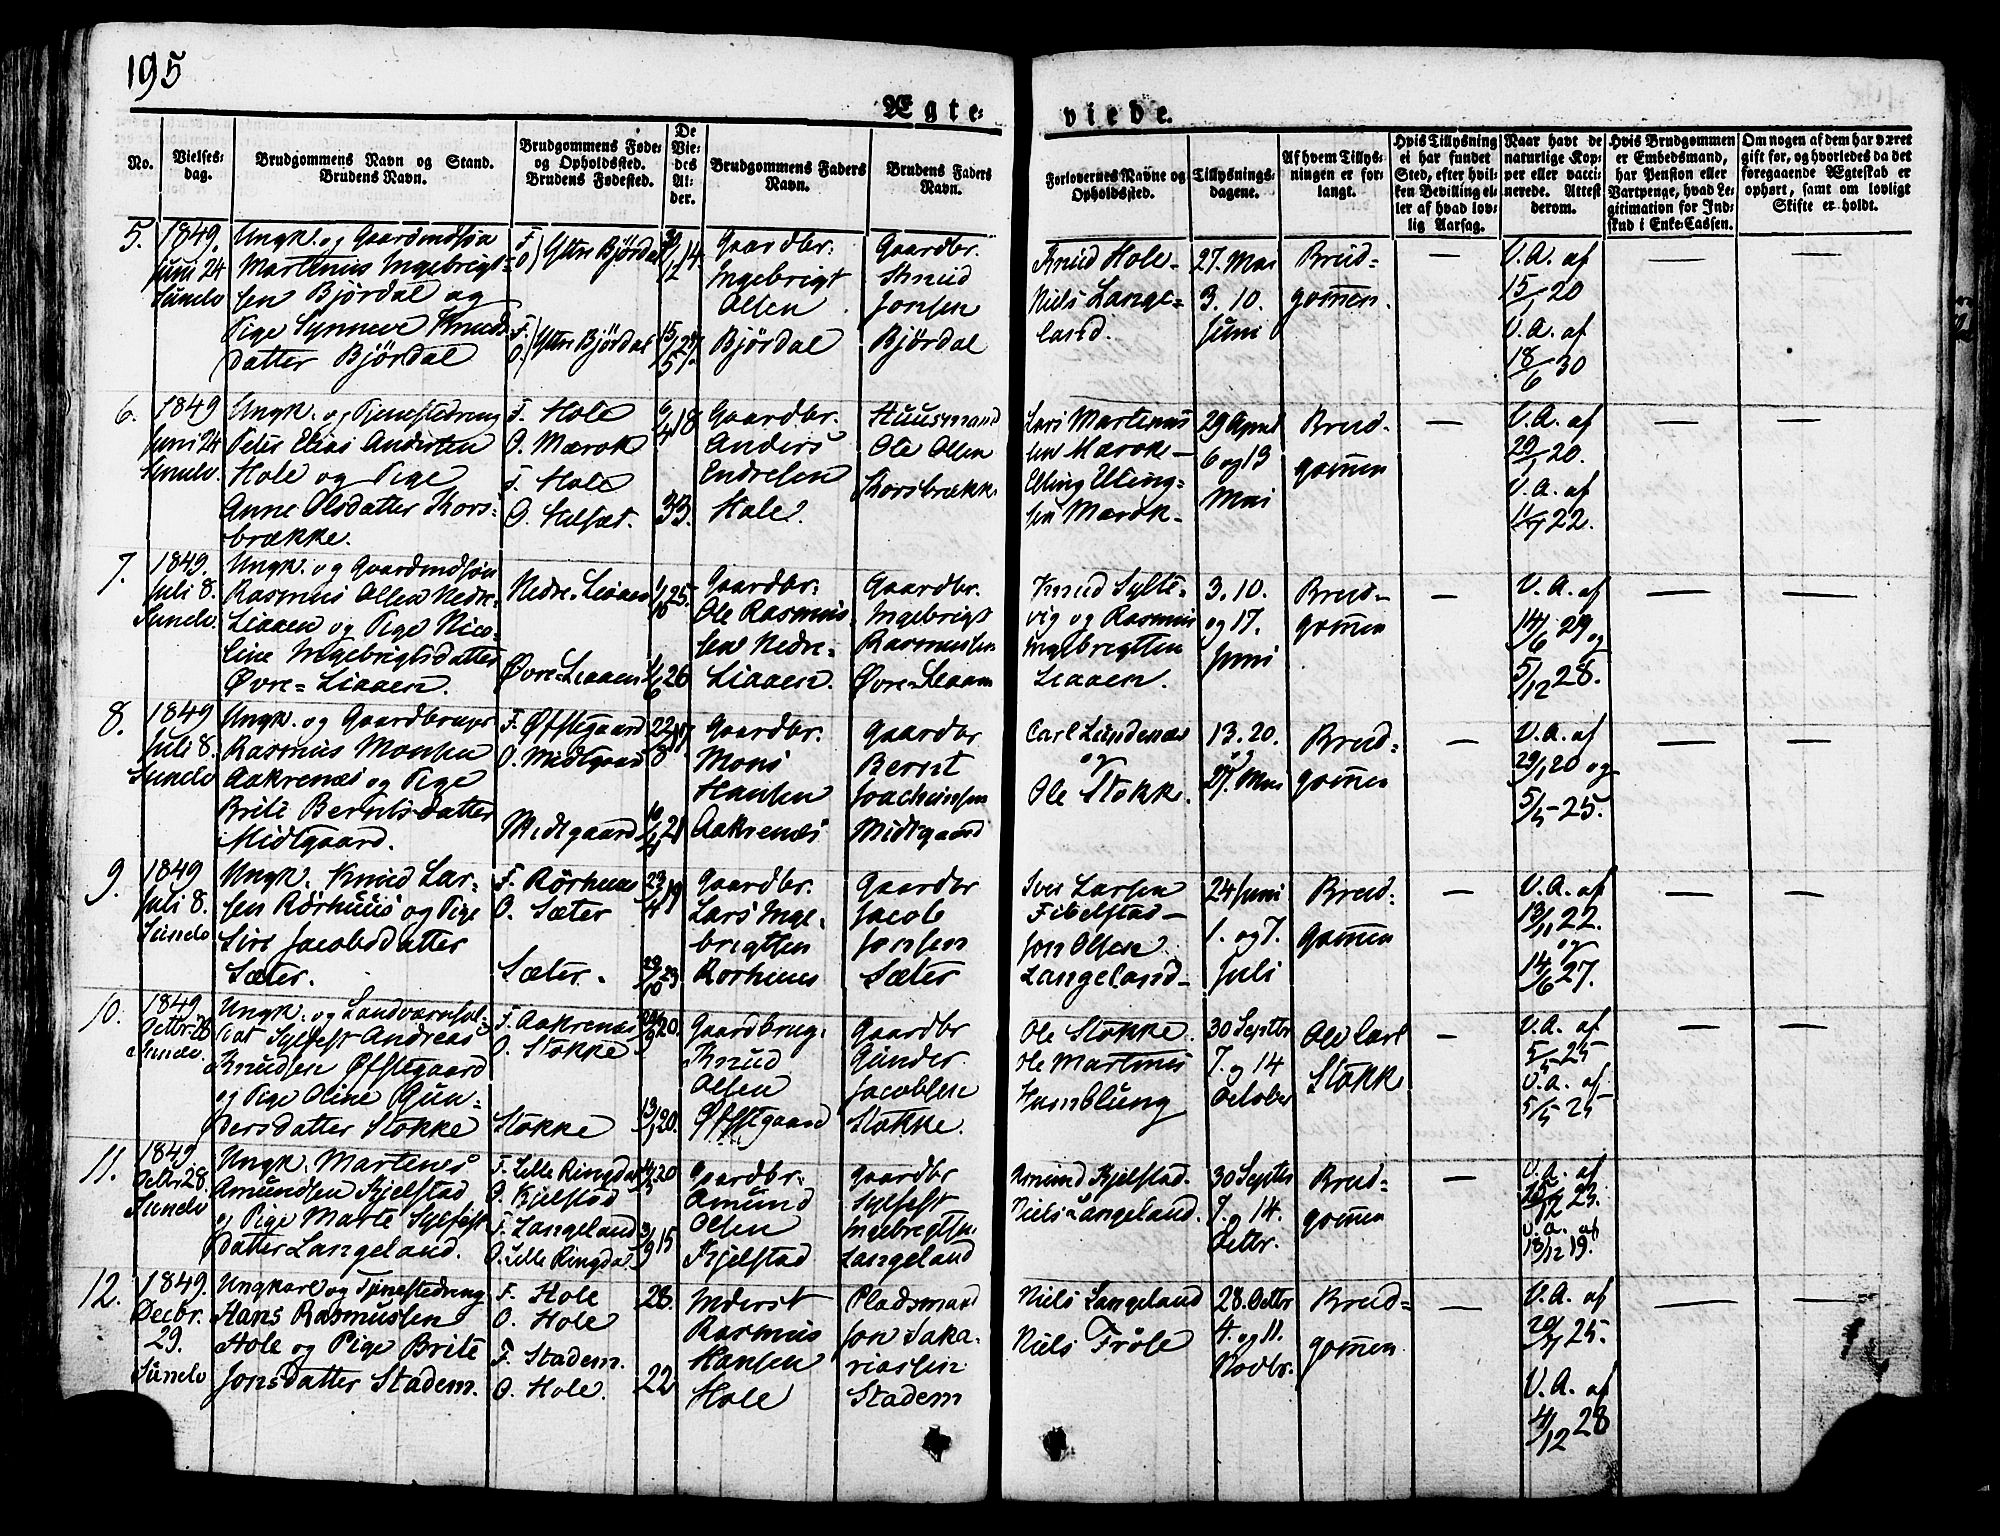 195
Ægte-
viede.
No.
Vielses-
dag.
Brudgommens Navn og Stand.
Brudens Navn.
Brudgommens Føde-
og Opholdssted.
Brudens Fødested.
De
Vie-
des
Al-
der.
Brudgommens Faders
Navn.
Brudens Faders
Navn.
Forlovernes Navne og
Opholdssted.
Tillysnings-
dagene.
Af hvem Tillys-
ningen er for-
langt.
Hvis Tillysning
ei har fundet
Sted, efter hvil-
ken Bevilling el-
ler af hvad lov-
lig Aarsag.
Naar havt de
naturlige Kop-
per eller vacci-
nerede. Attest
derom.
Hvis Brudgommen
er Embedsmand,
har Pension eller
Vartpenge, hvad Le-
gitimation for Ind-
skud i Enke-Cassen.
Om nogen af dem har været
gift før, og hvorledes da det
foregaaende Ægteskab er
ophørt, samt om lovligt
Skifte er holdt.
5.
1849.
Juni 24
Sundv
Ungk. og Gaardmdsøn
Martenus Ingebrigt-
sen Bjørdal og
Pige Synneve Knuds-
datter Bjørdal
F.
O. Ytre Bjørdal
F.
O. Ytre Bjørdal
Gaardbr.
Ingebrigt
Olsen
Bjørdal
Gaardbr.
Knud
Jonsen
Bjørdal
Knud Hole-
Niels Lange-
land.
27. Mai
3. 10.
Juni
Brud-
gomen.
—
V. A. af
15/ 20
V. A. af
18/6 30
— —
6.
1849
Juni 24
Sundv.
Ungk. og Tjenestedreng
Peter Elias Andersen
Hole og Pige
Anne Olsdatter Kors-
brække.
F. Hole
O. Marok
F. Hole
O.
6/4 18
33.
Gaardbr.
Anders
Endresen
Hole.
Huusmand
Ole Olsen
Korsbrække
Lars Martinus
sen Marok-
Elling Elling-
sen Marok-
29 April
6 og 13
Mai
Brud-
gomen
—
V. A. af
29/1 20.
V. A. af
22.
— —
7.
1849.
Juli 8.
Sundv.
Ungk. og Gaardmdsøn
Rasmus Olsen Nedre
Liaaen og Pige Nico-
line Ingebrigtsdatter
Øvre-Liaaen.
Nedre-Liaaen
Øvre-Liaaen
1/10 25.
1/6 26
Gaardbr.
Ole Rasmus-
sen Nedre-
Liaaen.
Gaardbr.
Ingebrigt
Rasmussen
Øvre-Liaaen
Knud Sylte-
vig og Rasmus
Ingebrigtsen
Liaaen.
3. 10.
og 17.
Juni
Brud-
gomen
—
V. A. af
14/6 29 og
5/12 28.
— —
8.
1849
Juli 8.
Sundv
Ungk. og Gaardbruger
Rasmus Monsen
Aakrenæs og Pige
Brite Berntsdatter
Midtgaard.
F. Øfstegaard
O. Midtgaard
Midtgaard
Gaardbr.
Mons
Hansen
Aakrenæs
Gaardbr
Bernt
Joachimsen
Midtgaard
Carl Lundenæs
og
Ole Stokke.
13. 20.
27. Mai
Brud-
gomen
—
V. A. af
29/1 20 og
5/5 25.
— —
9.
1849
Juli 8.
Sundv
Ungk. Knud Lar-
sen Rørhuus og Pige
Siri Jacobsdatter
Sæter.
F. Rørhuus
O. Sæter
Sæter.
23/4 19
29/10 23
Gaardbr.
Lars Inge-
brigtsen
Rørhuus
Gaardbr
Jacob
Jonsen
Sæter
Iver Larsen
Fibelstad-
Jon Olsen
Langeland-
24 Juni
1. og 7.
Juli
Brud-
gomen
—
V. A. af
13/11 22.
og
14/6 27.
— —
10.
1849
Octbr. 28
Sundv.
Ungk. og Landværnsol-
dat Sylfest Andreas
Knudsen Øfstegaard
og Pige Oline Gun-
dersdatter Stokke
F. Aakrenæs
O. Stokke
Stokke
20.
13/1 20.
Gaardbrug.
Knud
Olsen
Øfstgaard
Gaardbr
Gunder
Jacobsen
Stokke.
Ole Stokke.
Ole Martinus
Humblung
30 Septbr
7. og 14
October
Ole Carl
Stokke
—
V. A. af
5/5 25
V. A. af
5/5 25
— —
11.
1849.
Octbr 28.
Sundv
Ungk. Martenes
Amundsen Kjelstad
og Pige Marte Sylfest-
datter Langeland.
F. Lille Ringdal
O. Kjelstad
F. Langeland
O. Lille Ringdal
20
3/9 15
Gaardbr.
Amund
Olsen
Kjelstad
Gaardbr
Sylfest
Ingebrigtsen
Langeland
Amund Kjelstad.
Niels Langeland.
30 Septbr
7. og 14.
Octbr.
Brud-
gomen
—
V. A. af
23.
V. A. af
18/12 19.
— —
12.
1849.
Decbr.
29.
Sundv
Ungkarl og Tjenestedreng
Hans Rasmussen
Hole og Pige Brite
Jonsdatter Stadem.
F. Hole
O. Hole
F. Stadem.
O. Hole.
28.
22
Inderst
Rasmus
Hansen
Hole
Pladsmand
Jon Saka-
riassen
Stadem
Niels Langeland
Niels Frøle
28. Octbr
4. og 11.
Novbr.
Brud-
gomen
—
V. A. af
25.
V. A. af
4/12 28
— —